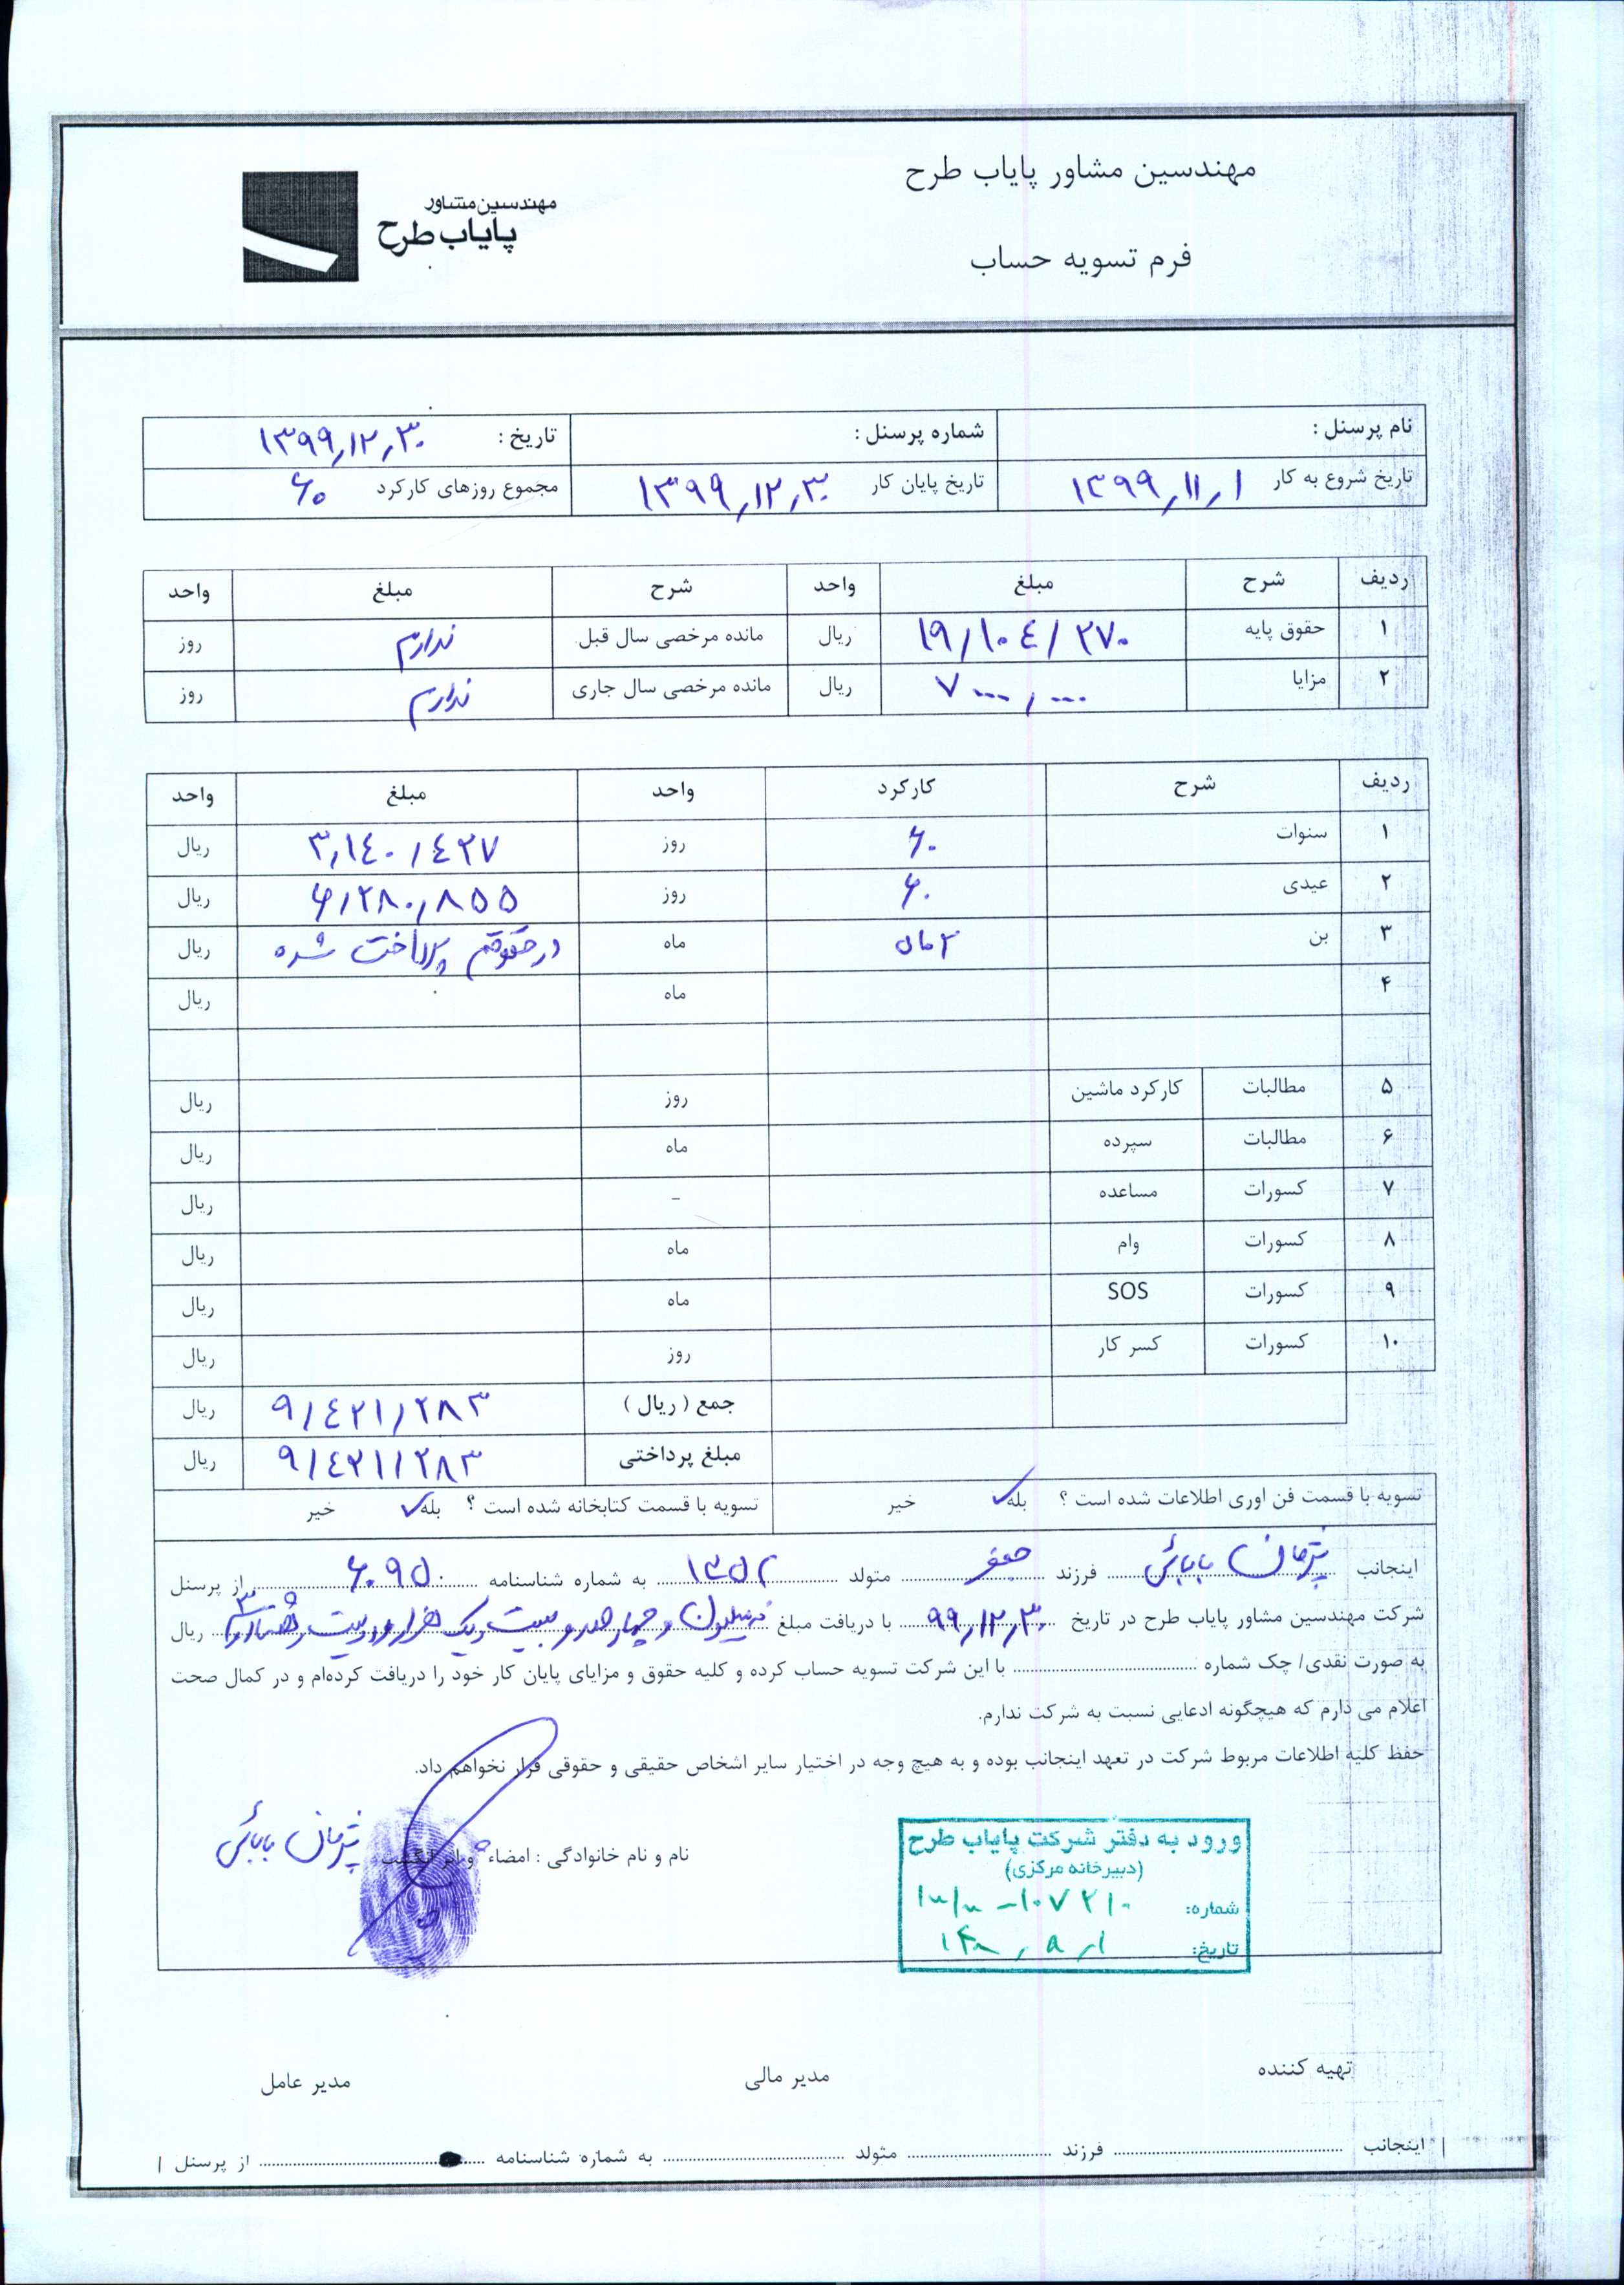 مهندسین مشاور پایاب طرح
مهندسین مشاور
پایاب طرح
فرم تسویه حساب
نام پرسنل : شماره پرسنل : تاریخ : ۱۳۹۹,۱۲,۳۰
تاریخ شروع به کار ۱۳۹۹,۱۱,۱ تاریخ پایان کار ۱۳۹۹,۱۲,۳۰ مجموع روزهای کارکرد ۶۰
ردیف شرح مبلغ واحد شرح مبلغ واحد
۱ حقوق پایه ۱۹/۱۰۴/۲۷۰ ریال مانده مرخصی سال قبل ندارم روز
۲ مزایا ۷۰۰۰,۰۰۰ ریال مانده مرخصی سال جاری ندارم روز
ردیف شرح کارکرد واحد مبلغ واحد
۱ سنوات ۶۰ روز ۳,۱۴۰,۴۲۷ ریال
۲ عیدی ۶۰ روز ۶,۲۸۰,۸۵۵ ریال
۳ بن ۲ماه ماه در حقوقم پرداخت شده ریال
۴ ماه ریال
۵ مطالبات کارکرد ماشین روز ریال
۶ مطالبات سپرده ماه ریال
۷ کسورات مساعده - ریال
۸ کسورات وام ماه ریال
۹ کسورات SOS ماه ریال
۱۰ کسورات کسر کار روز ریال
جمع ( ریال ) ۹/۴۲۱/۲۸۳ ریال
مبلغ پرداختی ۹/۴۲۱/۲۸۳ ریال
تسویه با قسمت فن اوری اطلاعات شده است ؟ بله خیر تسویه با قسمت کتابخانه شده است ؟ بله خیر
اینجانب پژمان بابائی فرزند جعفر متولد ۱۳۵۲ به شماره شناسنامه ۶۰۹۵۰ از پرسنل
شرکت مهندسین مشاور پایاب طرح در تاریخ ۹۹,۱۲,۳۰ با دریافت مبلغ نه میلیون و چهارصد و بیست و یک هزار و دویست و هشتاد و سه ریال
به صورت نقدی/ چک شماره با این شرکت تسویه حساب کرده و کلیه حقوق و مزایای پایان کار خود را دریافت کرده‌ام و در کمال صحت
اعلام می دارم که هیچگونه ادعایی نسبت به شرکت ندارم.
حفظ کلیه اطلاعات مربوط شرکت در تعهد اینجانب بوده و به هیچ وجه در اختیار سایر اشخاص حقیقی و حقوقی قرار نخواهم داد.
نام و نام خانوادگی : امضاء و اثر انگشت پژمان بابائی
ورود به دفتر شرکت پایاب طرح
(دبیرخانه مرکزی)
شماره:
تاریخ: ۱۴۰۰,۸,۱
تهیه کننده مدیر مالی مدیر عامل
اینجانب فرزند متولد به شماره شناسنامه از پرسنل